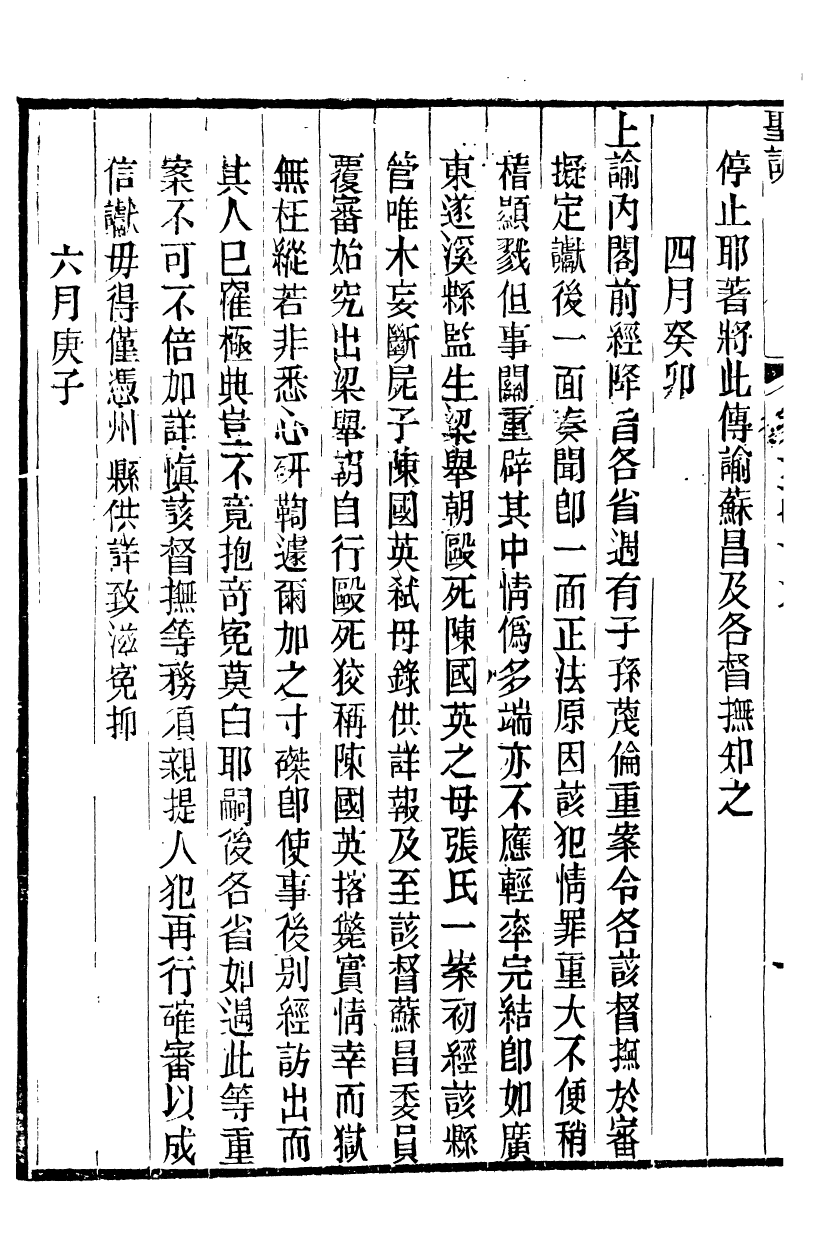 聖訓
停止耶著將此傳諭蘇昌及各督撫知之
四月癸卯
上諭內閣前經降旨各省遇有子孫蔑倫重案令各該督撫於審
擬定讞後一面奏聞卽一面正法原因該犯情罪重大不便稍
稽顯戮但事關重辟其中情僞多端亦不應輕率完結卽如廣
東遂溪縣監生梁舉朝毆死陳國英之母張氏一案初經該縣
管唯木妄斷屍子陳國英弒母錄供詳報及至該督蘇昌委員
覆審始究出梁舉朝自行毆死狡稱陳國英撘斃實情幸而獄
無枉縱若非悉心研鞫遽爾加之寸磔卽使事後別經訪出而
其人已罹極典豈不竟抱奇冤莫白耶嗣後各省如遇此等重
案不可不倍加詳愼該督撫等務須親提人犯再行確審以成
信讞毋得僅憑州縣供詳致滋冤抑
六月庚子